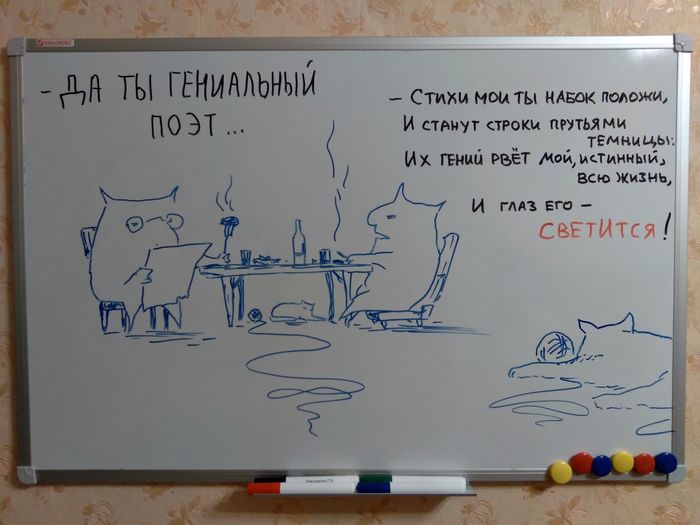 - ДА ТЫ ГЕНИАЛЬНЫЙ
ПОЭТ...
- СТИХИ МОИ ТЫ НАБОК ПОЛОЖИ,
И СТАНУТ СТРОКИ ПРУТЬЯМИ
ТЕМНИЦЫ:
ИХ ГЕНИЙ РВЁТ МОЙ, ИСТИННЫЙ,
ВСЮ ЖИЗНЬ,
И ГЛАЗ ЕГО -
СВЕТИТСЯ!